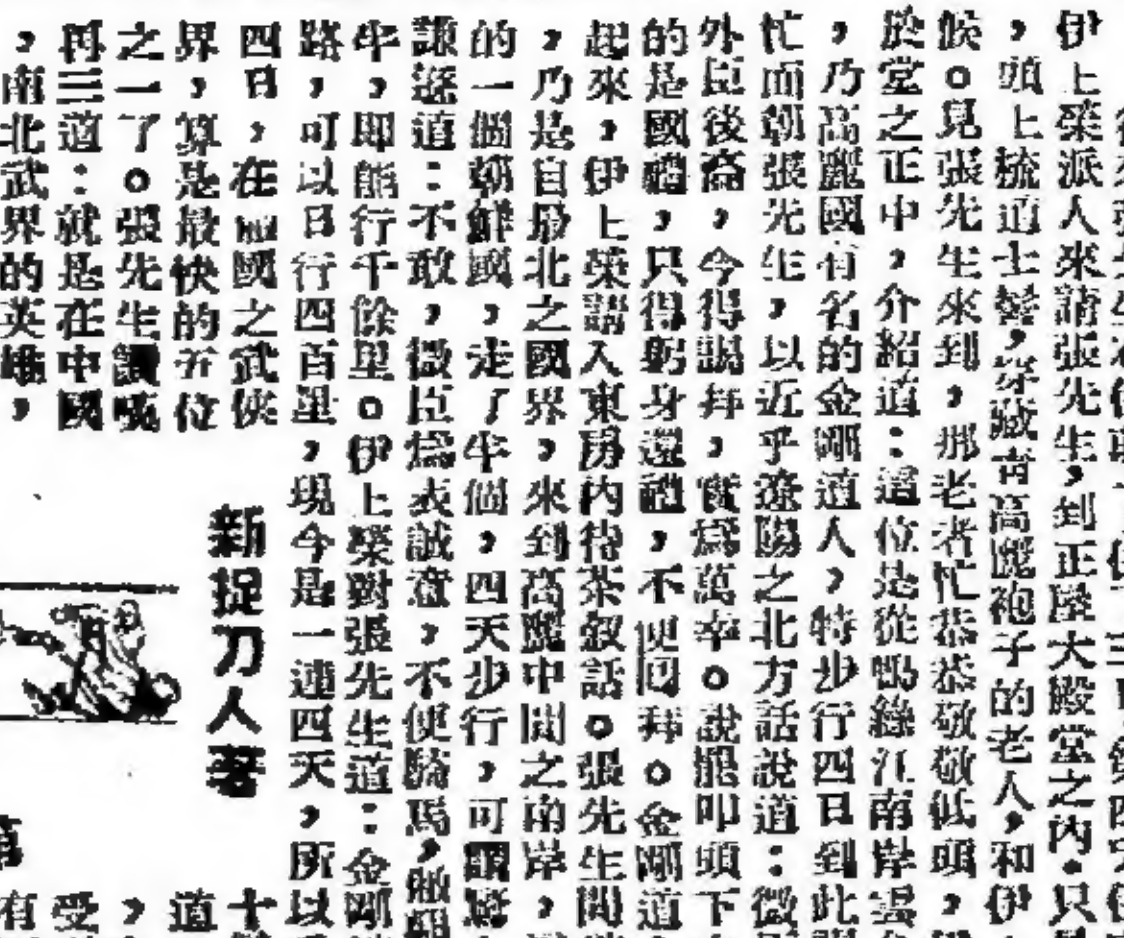 伊上榮派人來請張先生，到正陞大殿堂之內。只
，頭上梳道士髻，穿藏青高麗袍子的老人，和伊
候。見張先生來到，那老者忙恭恭敬敬低頭，
於堂之正中，介紹道：這位是從鴨綠江南岸雲
，乃高麗國有名的金剛道人，特步行四日到此
忙面朝張先生，以近乎遼陽之北方話說道：微
外臣後裔，今得謁拜，實爲萬幸。說罷叩頭下
的是國禮，只得躬身還禮，不便回拜。金剛道
起來，伊上榮請入東房內待茶敘話。張先生問
，乃是自最北之國界，來到高麗中間之南岸，
的一個朝鮮國，走了半個，四天步行，可謂驚
謙遜道：不敢，微臣爲表誠意，不便騎馬，敝朝
牛，即能行千餘里。伊上榮對張先生道：金剛
路，可以日行四百里，現今是一連四天，所以
四日，在兩國之武俠
界，算是最快的五位
之一了。張先生讚嘆
再三道：就是在中國
，南北武界的英雄，
新捉刀人著
十
道
，
受
有